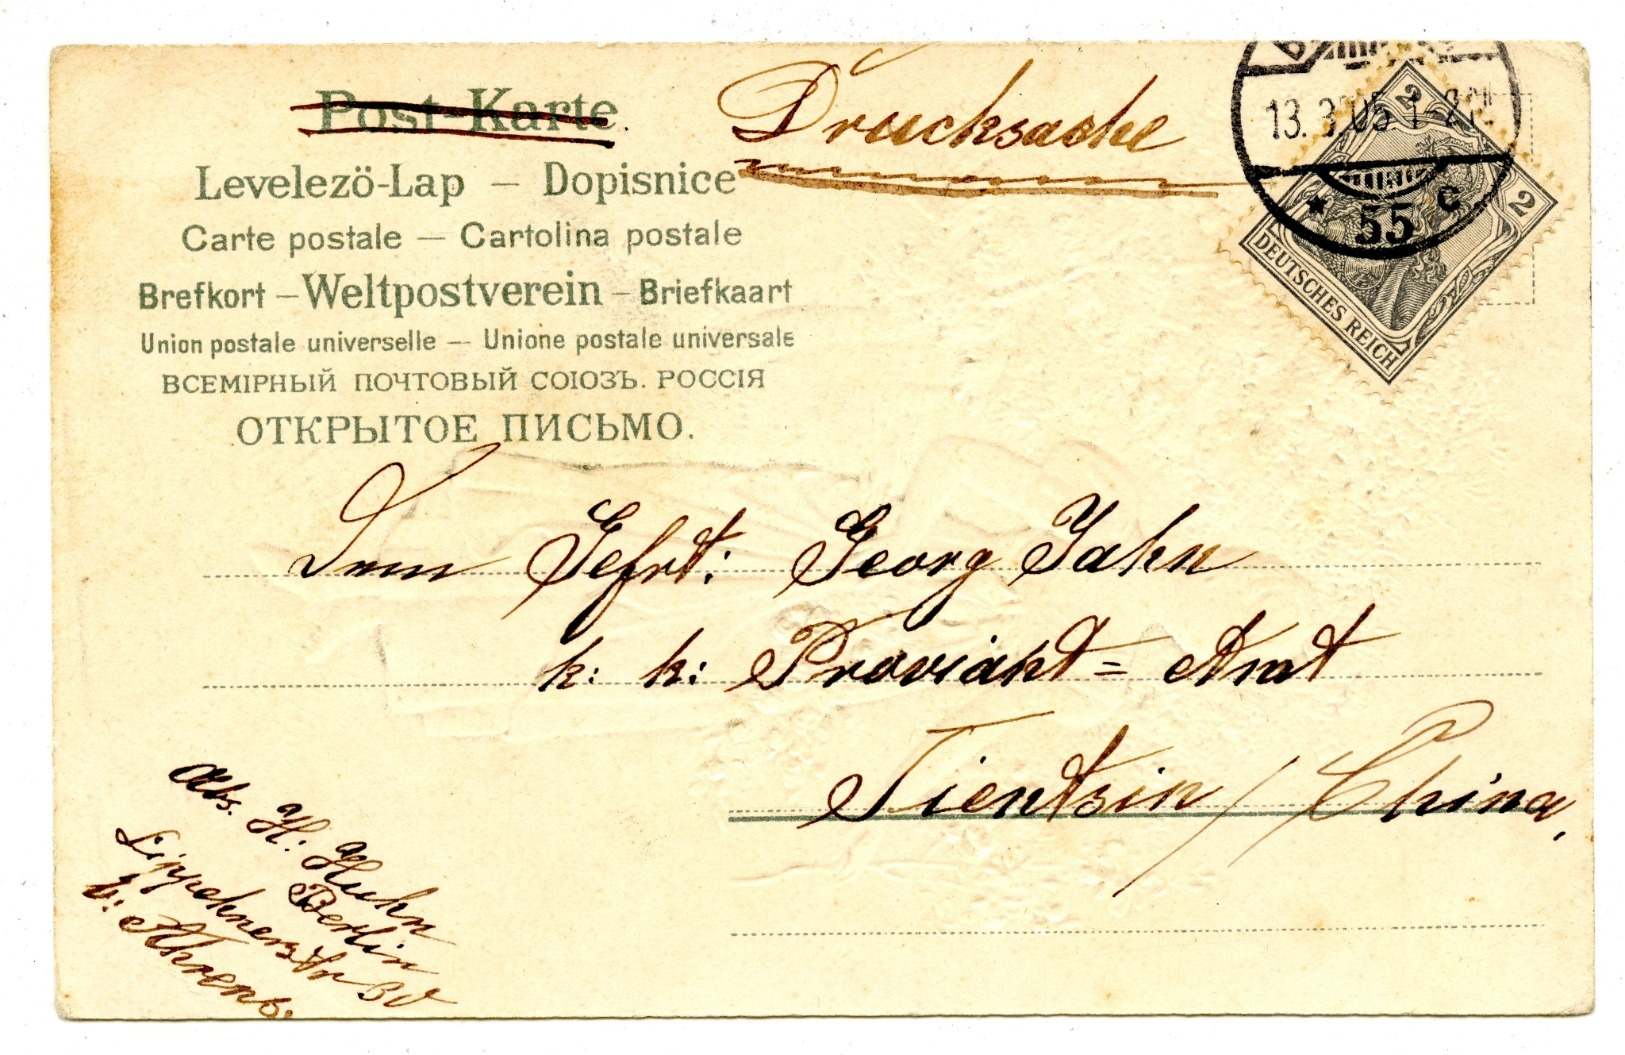 Post-Karte.
Drucksache
Levelezö-Lap – Dopisnice
Carte postale – Cartolina postale
Brefkort – Weltpostverein – Briefkaart
Union postale universelle – Unione postale universale
ВСЕМІРНЫЙ ПОЧТОВЫЙ СОЮЗЪ. РОССІЯ
ОТКРЫТОЕ ПИСЬМО.
13. 3 05 1-2N
* 55 c
2
2
DEUTSCHES REICH
Dem Gefrt: Georg Jahn
k: k: Proviant=Amt
Tientsin / China,
Abs. H: Huhn
Berlin
Lippehnerstr 30
b: Ahrens.